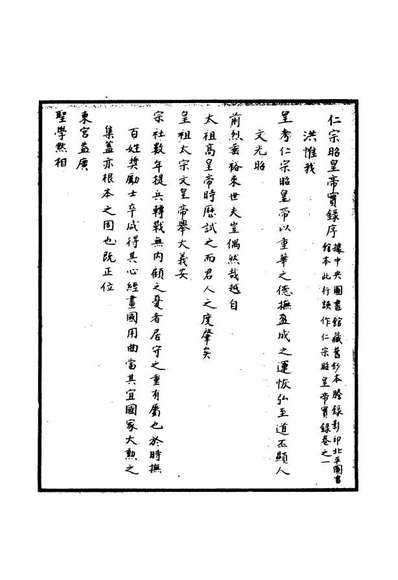 仁宗昭皇帝實錄序
據中央圖書館藏舊鈔本謄錄影印北平圖書
館本此行誤作仁宗昭皇帝實錄卷之一
洪惟我
皇考仁宗昭皇帝以重華之德撫盈成之運恢弘至道丕顯人
文光昭
前烈垂裕來世夫豈偶然哉越自
太祖高皇帝時歷試之而君人之度肇矣
皇祖太宗文皇帝舉大義安
宗社數年提兵轉戰無內顧之憂者居守之重有屬也於時撫
百姓獎勵士卒咸得其心經畫國用曲當其宜國家大勳之
集蓋亦根本之固也既正位
東宮益廣
聖學熙相